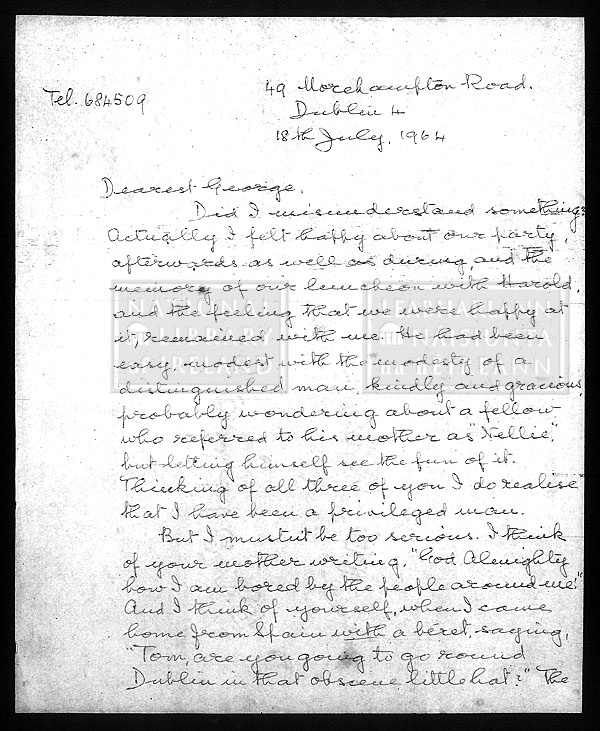 49 Morehampton Road.
Tel. 684509
Dublin 4
18th July, 1964
Dearest George,
Did I misunderstand something?
Actually I felt happy about our party,
afterwards as well as during, and the
memory of our luncheon with Harold,
and the feeling that we were happy at
it, remained with me. He had been
easy, modest with the modesty of a
distinguished man, kindly and gracious,
probably wondering about a fellow
who referred to his mother as "Nellie,"
but letting himself see the fun of it.
Thinking of all three of you I do realise
that I have been a privileged man.
But I mustnt be too serious. I think
of your mother writing, "God Almighty
how I am bored by the people around me!"
And I think of yourself, when I came
home from Spain with a béret, saying,
"Tom, are you going to go round
Dublin in that obscene little hat?" The
NATIONAL
LIBRARY
OF IRELAND
LEABHARLANN
NÁISIÚNTA
NA HÉIREANN